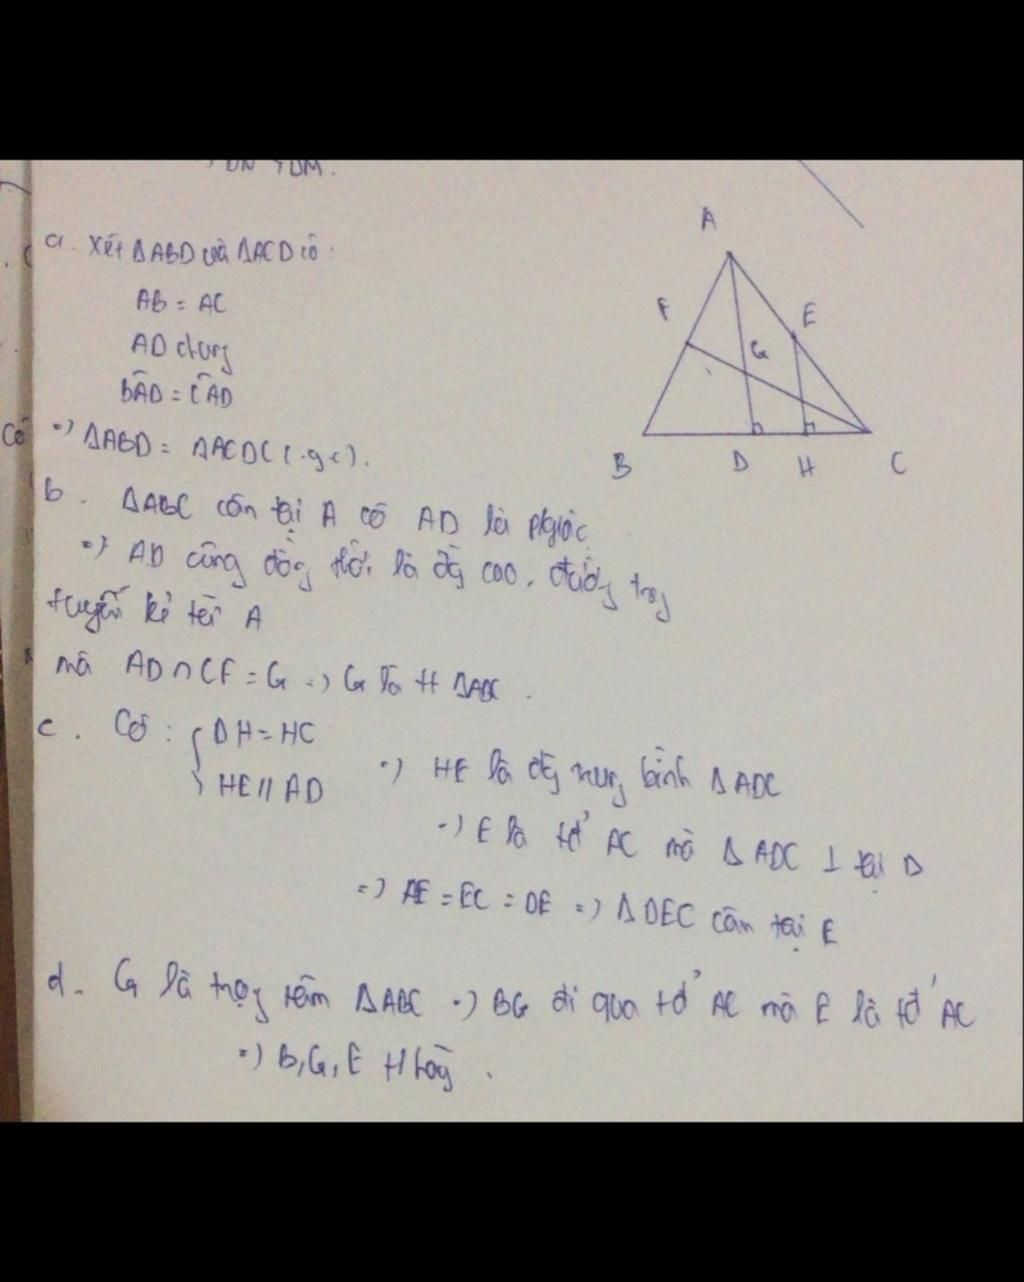 a. Xét ΔABD và ΔACD có:
AB = AC
AD chung
BÂD = CÂD
Có
=) ΔABD = ΔACD (c.g.c).
b. ΔABC cân tại A có AD là pgiác
=) AD cũng đồng thời là đg cao, đường trg
tuyến kẻ từ A
mà AD ∩ CF = G =) G là tt ΔABC.
c. Có: { DH = HC
HE // AD
=) HE là đg trung bình ΔADC
=) E là tđ' AC mà ΔADC ⊥ tại D
=) AE = EC = DE =) ΔDEC cân tại E
d. G là trọg tâm ΔABC =) BG đi qua tđ' AC mà E là tđ' AC
=) B, G, E thẳg.
A
F
E
G
B
D
H
C